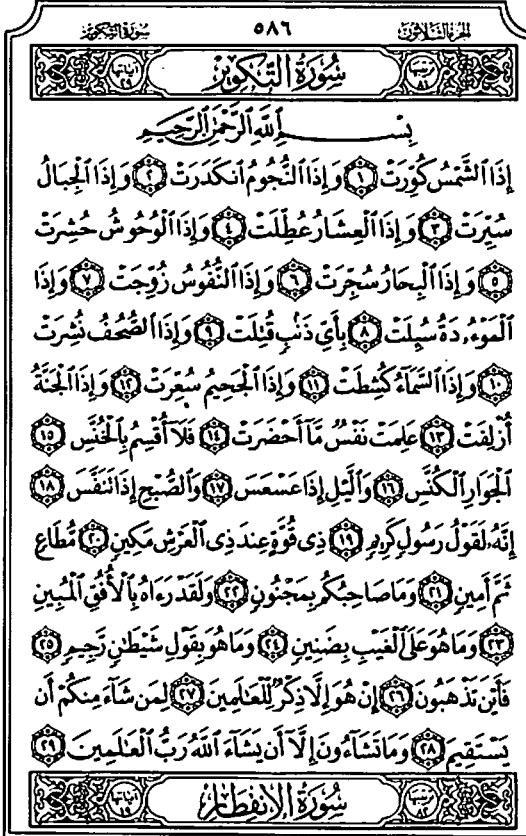 سورة التكوير ٥٨٦ الجزء الثلاثون
ترتيبها ٨١ سُورَةُ التَّكْوِير آياتها ٢٩
بِسْمِ ٱللَّهِ ٱلرَّحْمَٰنِ ٱلرَّحِيمِ
إِذَا ٱلشَّمْسُ كُوِّرَتْ ١ وَإِذَا ٱلنُّجُومُ ٱنكَدَرَتْ ٢ وَإِذَا ٱلْجِبَالُ
سُيِّرَتْ ٣ وَإِذَا ٱلْعِشَارُ عُطِّلَتْ ٤ وَإِذَا ٱلْوُحُوشُ حُشِرَتْ
٥ وَإِذَا ٱلْبِحَارُ سُجِّرَتْ ٦ وَإِذَا ٱلنُّفُوسُ زُوِّجَتْ ٧ وَإِذَا
ٱلْمَوْءُۥدَةُ سُئِلَتْ ٨ بِأَىِّ ذَنۢبٍ قُتِلَتْ ٩ وَإِذَا ٱلصُّحُفُ نُشِرَتْ
١٠ وَإِذَا ٱلسَّمَآءُ كُشِطَتْ ١١ وَإِذَا ٱلْجَحِيمُ سُعِّرَتْ ١٢ وَإِذَا ٱلْجَنَّةُ
أُزْلِفَتْ ١٣ عَلِمَتْ نَفْسٌ مَّآ أَحْضَرَتْ ١٤ فَلَآ أُقْسِمُ بِٱلْخُنَّسِ ١٥
ٱلْجَوَارِ ٱلْكُنَّسِ ١٦ وَٱلَّيْلِ إِذَا عَسْعَسَ ١٧ وَٱلصُّبْحِ إِذَا تَنَفَّسَ ١٨
إِنَّهُۥ لَقَوْلُ رَسُولٍ كَرِيمٍ ١٩ ذِى قُوَّةٍ عِندَ ذِى ٱلْعَرْشِ مَكِينٍ ٢٠ مُّطَاعٍ
ثَمَّ أَمِينٍ ٢١ وَمَا صَاحِبُكُم بِمَجْنُونٍ ٢٢ وَلَقَدْ رَءَاهُ بِٱلْأُفُقِ ٱلْمُبِينِ
٢٣ وَمَا هُوَ عَلَى ٱلْغَيْبِ بِضَنِينٍ ٢٤ وَمَا هُوَ بِقَوْلِ شَيْطَٰنٍ رَّجِيمٍ ٢٥
فَأَيْنَ تَذْهَبُونَ ٢٦ إِنْ هُوَ إِلَّا ذِكْرٌ لِّلْعَٰلَمِينَ ٢٧ لِمَن شَآءَ مِنكُمْ أَن
يَسْتَقِيمَ ٢٨ وَمَا تَشَآءُونَ إِلَّآ أَن يَشَآءَ ٱللَّهُ رَبُّ ٱلْعَٰلَمِينَ ٢٩
ترتيبها ٨٢ سُورَةُ الإِنفِطَار آياتها ١٩